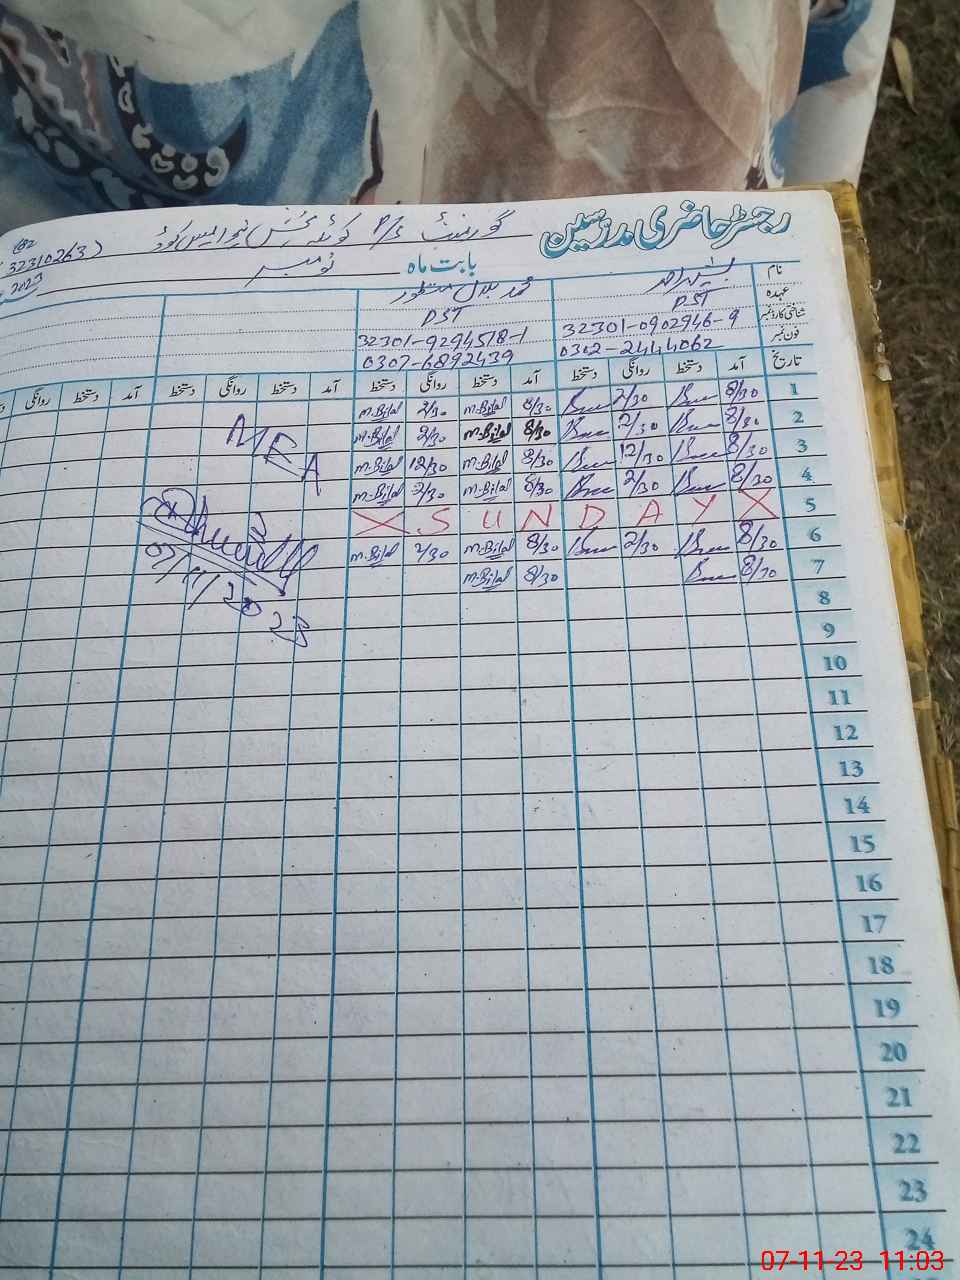 رجسٹر حاضری مدرسین
گورنمنٹ P/S
32310263)
بابت ماہ نومبر
2023
نام بشیر احمد محمد بلال منظور
عہدہ PST PST
شناختی کارڈ نمبر 32301-0902946-9 32301-9294518-1
فون نمبر 0302-2444062 0307-6892439
تاریخ آمد دستخط روانگی دستخط آمد دستخط روانگی دستخط آمد دستخط روانگی دستخط آمد دستخط روانگی
1 8/30 2/30 8/30 M.Bilal 2/30 M.Bilal
2 8/30 2/30 8/30 M.Bilal 2/30 M.Bilal
3 8/30 12/30 8/30 M.Bilal 12/30 M.Bilal
4 8/30 2/30 8/30 M.Bilal 2/30 M.Bilal
5 X S U N D A Y X
6 8/30 2/30 8/30 M.Bilal 2/30 M.Bilal
7 8/30 8/30 M.Bilal
MEA
07/11/2023
8
9
10
11
12
13
14
15
16
17
18
19
20
21
22
23
24
07-11-23 11:03